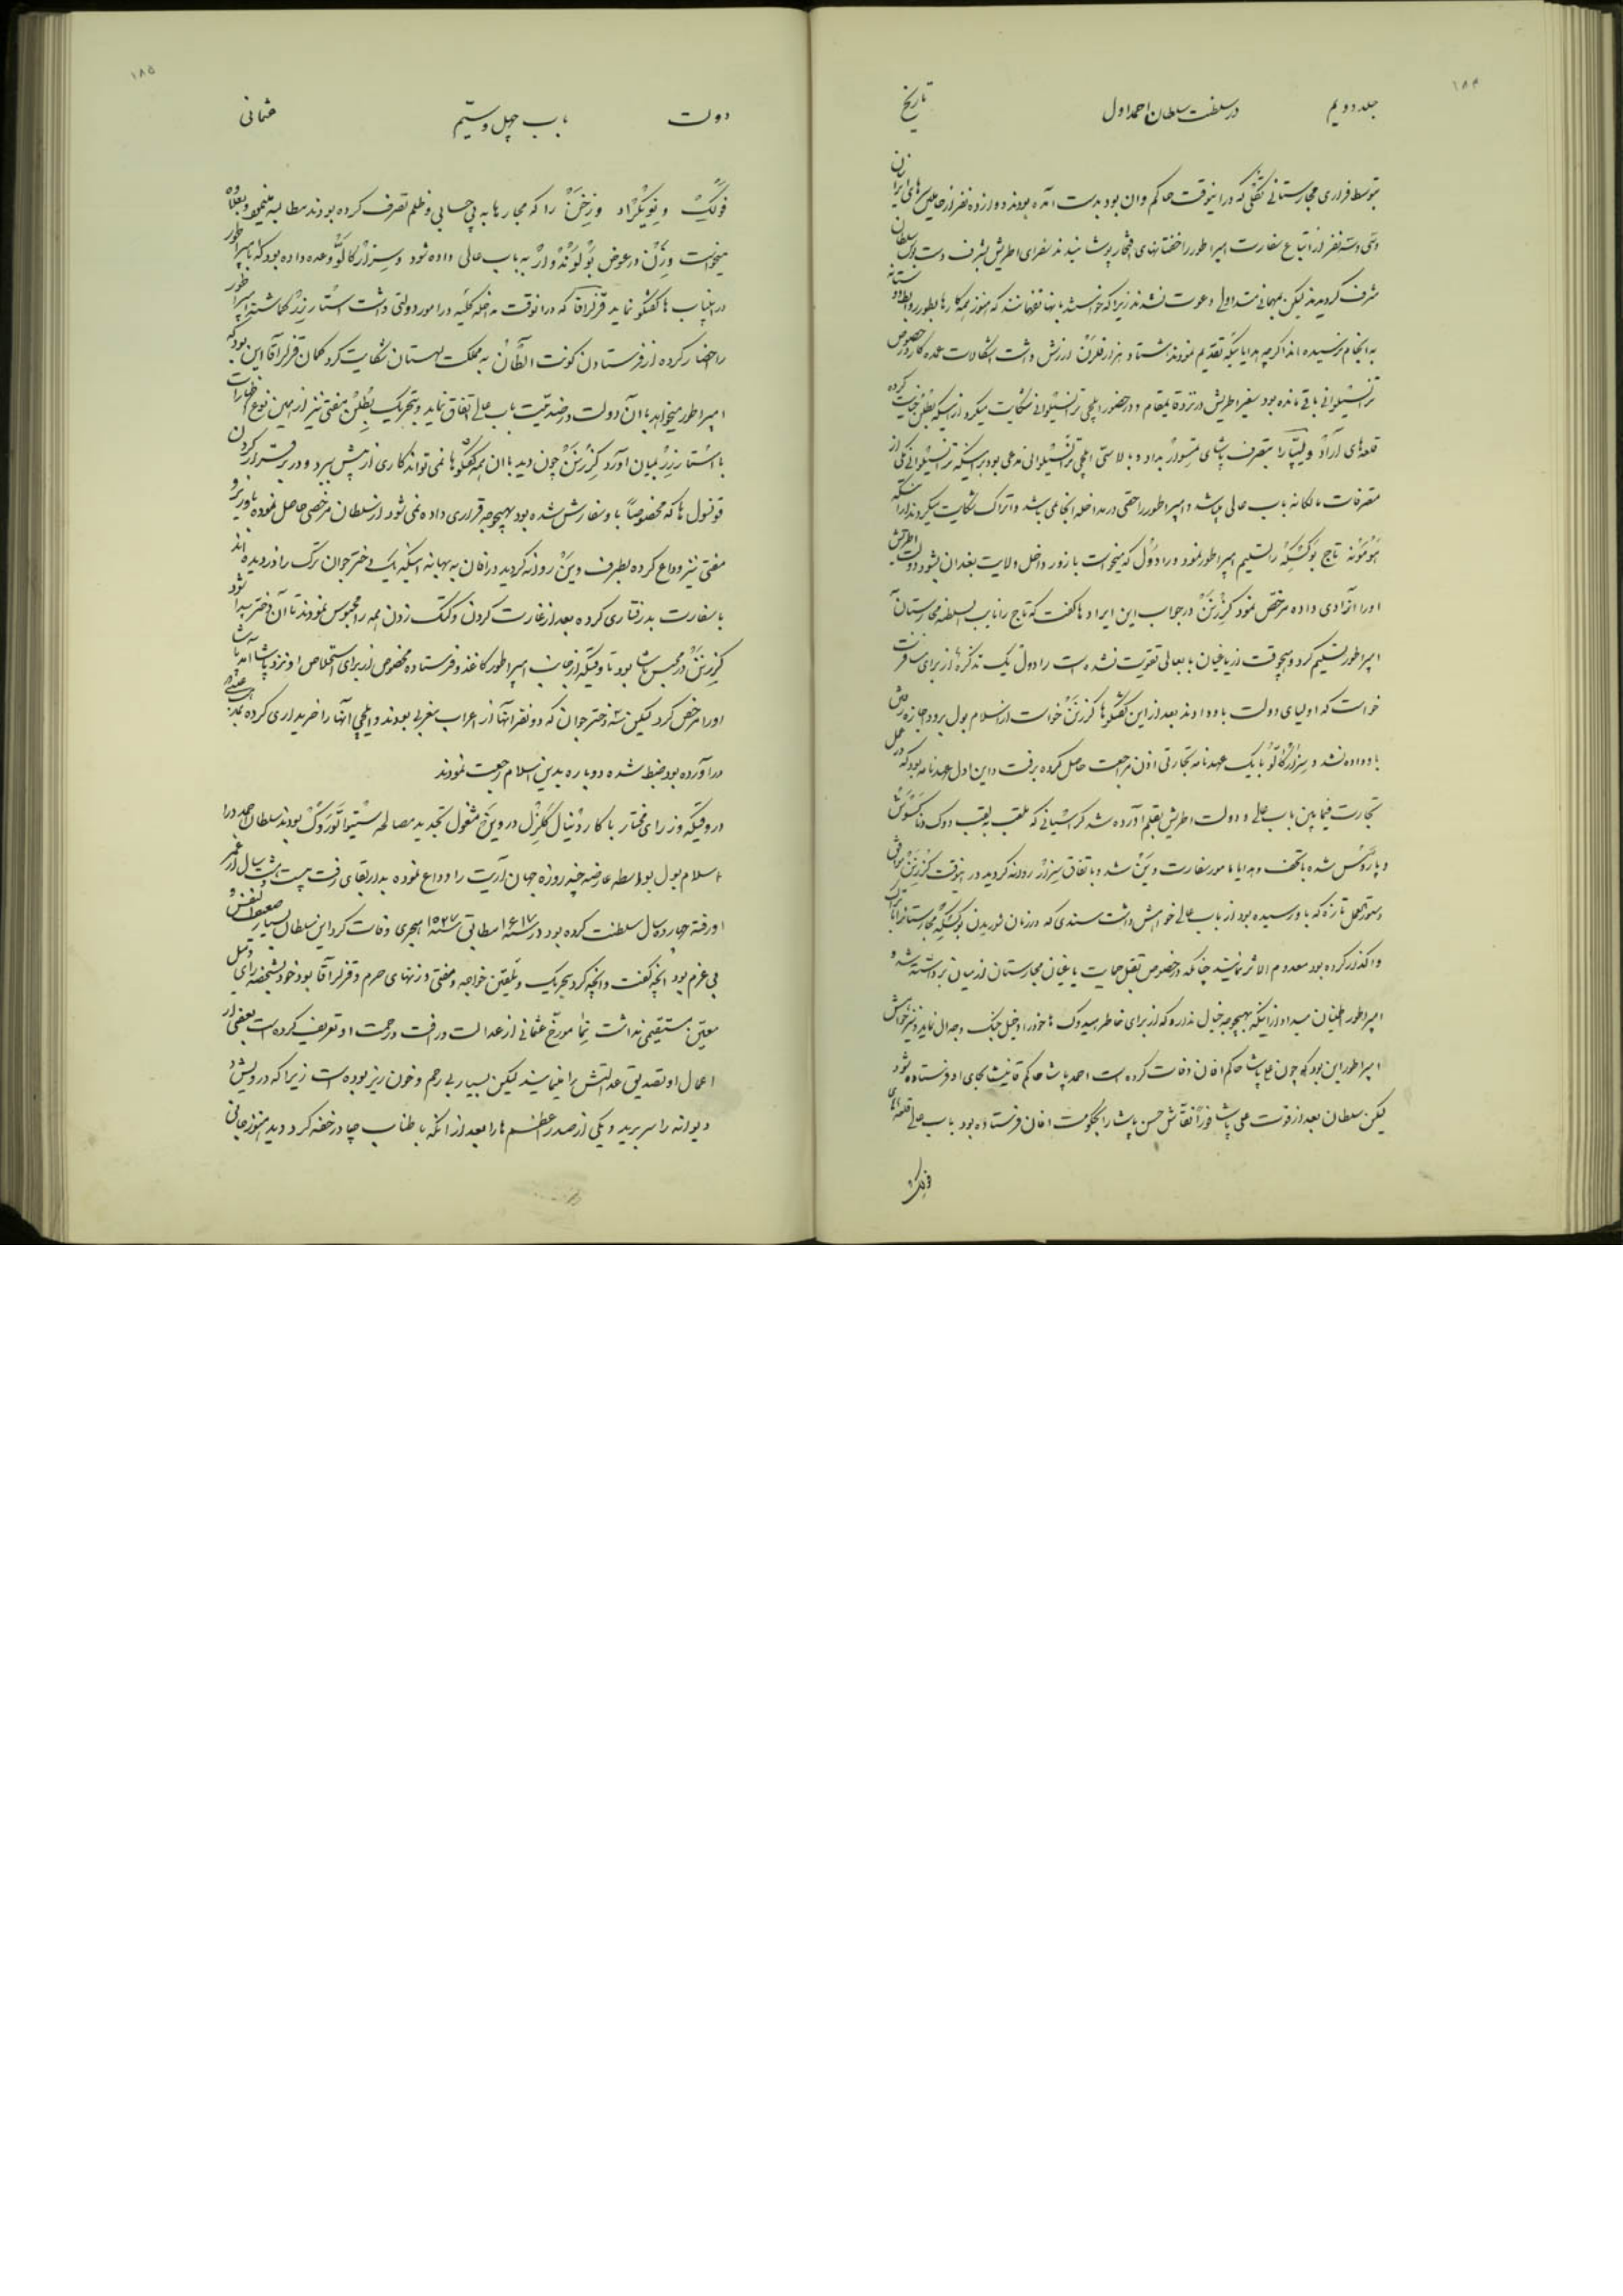 ۱۸۴
جلد دویم
در سلطنت سلطان احمد اول
تاریخ
بتوسط فراری مجارستانی که در اینوقت حاکم وان بود بدست آمده بودند دوازده نفر از های ایران
وسی وسه نفر از اتباع سفارت امپراطور را خفتانهای افتخار پوشانیدند سفرای اطریش بشرف دست بوس سلطان
مشرف گردیدند لیکن بمهمانی متداولی دعوت نشدند زیرا که خواستند بآنها بفهمانند که هنوز همه کارها بطور
به انجام نرسیده اند اگرچه هدایائیکه تقدیم نمودند هشتاد هزار فلرن ارزش داشت اشکالات عمده کار در خصوص
ترانسیلوانی باقی مانده بود سفیر اطریش در نزد قایمقام و در حضور ایلچی ترانسیلوانی شکایت میکرد از اینکه بطلن خیانت کرده
قلعه‌های آراد و لیپا را بتصرف پاشای تمسوار بداد و بالاستی ایلچی ترانسیلوانی مدعی بود بر اینکه ترانسیلوانی یکی از
متصرفات مالکانه باب عالی باشد و امپراطور را حقی در مداخله آنجا نمی باشد و اتراک شکایت میکردند از اینکه
هومونه تاج بوکسکه را تسلیم امپراطور نمود و رادول که میخواست با زور داخل ولایت بغدان بشود دولت اطریش
او را آزادی داده مرخص نمود کزرنن در جواب این ایرادها گفت که تاج را نایب السلطنه مجارستان به
امپراطور تسلیم کرد و هیچوقت از یاغیان بابعالی تقویت نشده است رادول یک تذکره از برای مسافرت
خواست که اولیای دولت باو دادند بعد از این گفتگوها کزرنن خواست از اسلامبول برود اجازه رفتن
باو داده نشد و سزار گالو با یک عهدنامه تجارتی اذن مراجعت حاصل کرده برفت و این اول عهدنامه بود که در عمل
تجارت فیمابین باب عالی و دولت اطریش بقلم آورده شد کراسیانی که ملقب بلقب دوک دناکسوس
و پاروس شده با تحف و هدایا مامور سفارت وین شد و باتفاق سزار روانه گردید در اینوقت کزرنن موافق
دستورالعمل تازه که باو رسیده بود از باب عالی خواهش داشت سندی که در زمان شوریدن بوکسکه مجارستانرا باتراک
واگذار کرده بود معدوم الاثر نمایند چنانکه در خصوص تقبل حمایت یاغیان مجارستان از میان برداشته شد و
امپراطور اطمینان میداد از اینکه بهیچوجه خیال ندارد که از برای خاطر هیدوک ها خود را داخل جنگ و جدال نماید و نیز خواهش
امپراطور این بود که چون علی پاشا حاکم افان وفات کرده است احمد پاشا حاکم قانیشه بجای او فرستاده شود
لیکن سلطان بعد از فوت علی پاشا فوراً نقاش حسن پاشا را بحکومت افان فرستاده بود باب عالی قلعه‌های
فولک
۱۸۵
دولت
باب چهل و سیّم
عثمانی
فولک و نویگراد و زخن را که مجارها به بی حسابی و ظلم تصرف کرده بودند مطالبه مینمود و بعلاوه
میخواست ورن در عوض بولوندوار به باب عالی داده شود و سزار گالو وعده داده بود که با امپراطور
در اینباب ها گفتگو نماید قزلرآقا که در آنوقت مداخله کلیه در امور دولتی داشت استارزر گماشته امپراطور
را احضار کرده از فرستادن کونت الطان به مملکت لهستان شکایت کرد گمان قزلرآقا این بود که
امپراطور میخواهد با آن دولت در ضدیت باب عالی اتفاق نماید و بتحریک بطلن مفتی نیز از همین نوع اظهارات
با استارزر بمیان آورد کزرنن چون دید با آن همه گفتگوها نمی تواند کاری از پیش ببرد و در برقرار کردن
قونسول ها که مخصوصاً باو سفارش شده بود بهیچوجه قراری داده نمی شود از سلطان مرخصی حاصل نموده با وزیر و
مفتی نیز وداع کرده بطرف وین روانه گردید در افان به بهانه اینکه یک دختر جوان ترک را دزدیده اند
با سفارت بدرفتاری کرده بعد از غارت کردن و کتک زدن همه را محبوس نمودند تا آن دختر پیدا شود
کزرنن در حبس پاشا بود تا وقتیکه از جانب امپراطور کاغذ و فرستاده مخصوص از برای استخلاص او نزد پاشا آمد پاشا
او را مرخص کرد لیکن سه دختر جوان که دو نفر آنها از اعراب مغربی بودند و ایلچی آنها را خریداری کرده بمذهب عیسی
در آورده بود ضبط شده دوباره بدین اسلام رجعت نمودند
در وقتیکه وزرای مختار با کاردنیال کلزل در وین مشغول تجدید مصالحه ستیواتوروک بودند سلطان احمد در
اسلامبول بواسطه عارضه چند روزه جهان آریت را وداع نموده بدار بقای رفت بیست و هشت سال از عمر
او رفته چهارده سال سلطنت کرده بود در سنه ۱۶۱۷ مطابق سنه ۱۰۲۷ هجری وفات کرد این سلطان بسیار ضعیف النفس و
بی عزم بود آنچه گفت و آنچه کرد بتحریک و تلقین خواجه و مفتی و زنهای حرم و قزلرآقا بود خود بشخصه رأی و میل
معین مستقیمی نداشت نیما مورخ عثمانی از عدالت و رافت و رحمت او تعریف کرده است بعضی از
اعمال او تصدیق عدالتش را مینمایند لیکن بسیار بی رحم و خون ریز بوده است زیرا که درویش
دیوانه را سر برید و یکی از صدر اعظم ها را بعد از آنکه با طناب چادر خفه کرد دید هنوز جانی